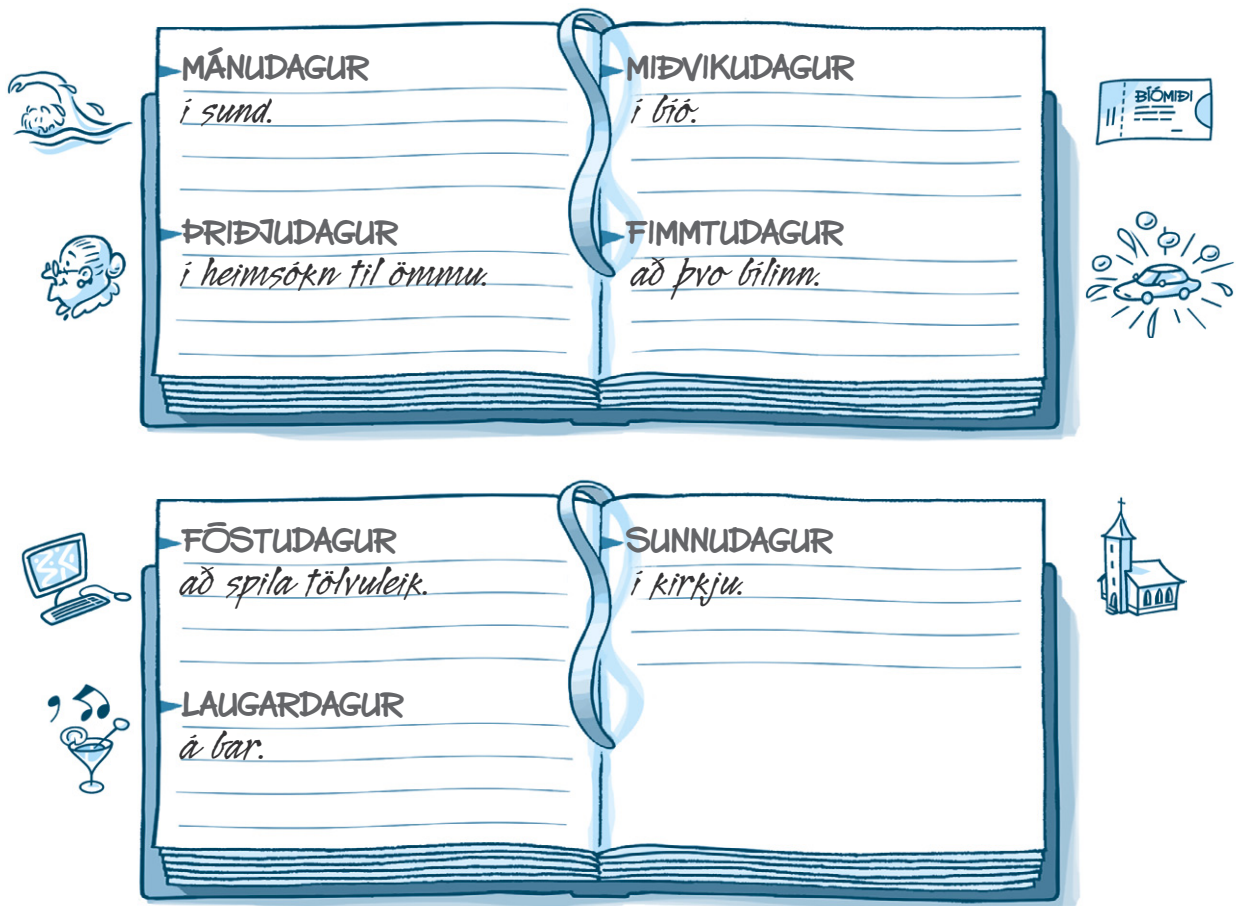 MÁNUDAGUR
í sund.
ÞRIÐJUDAGUR
í heimsókn til ömmu.
MIÐVIKUDAGUR
í bíó.
FIMMTUDAGUR
að þvo bílinn.
BÍÓMIÐI
FÖSTUDAGUR
að spila tölvuleik.
LAUGARDAGUR
á bar.
SUNNUDAGUR
í kirkju.